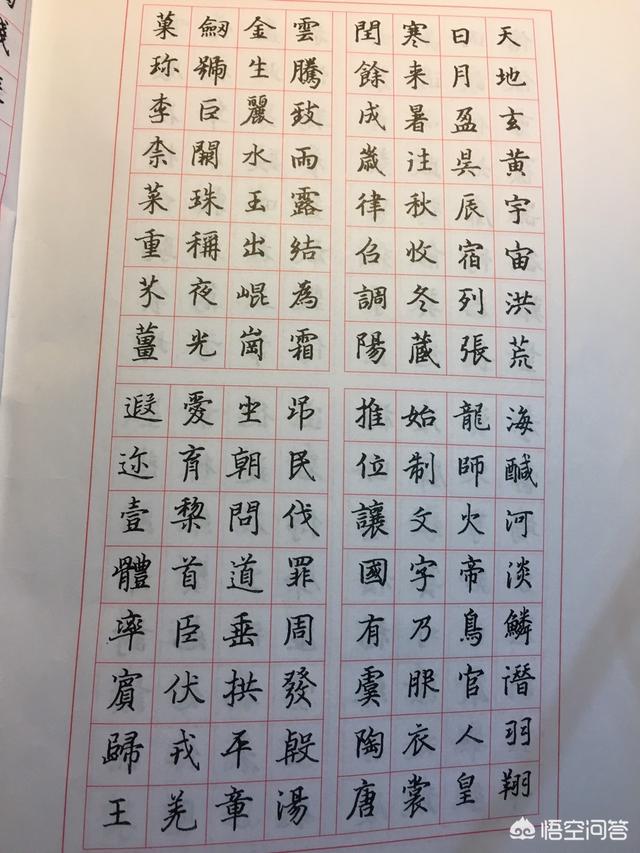 天地玄黄宇宙洪荒
日月盈昃辰宿列張
寒来暑往秋收冬藏
閏餘成歲律召調陽
雲騰致雨露結為霜
金生麗水玉出崐崗
劒號巨闕珠稱夜光
菓珍李柰菜重芥薑
海鹹河淡鱗潛羽翔
龍師火帝鳥官人皇
始制文字乃服衣裳
推位讓國有虞陶唐
弔民伐罪周發殷湯
坐朝問道垂拱平章
愛育黎首臣伏戎羌
遐迩壹體率賓歸王
悟空问答